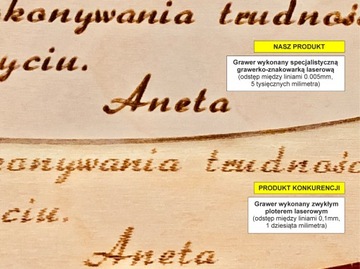 konywania trudnośc
yciu.
Aneta
NASZ PRODUKT
Grawer wykonany specjalistyczną
grawerko-znakowarką laserową
(odstęp między liniami 0.005mm,
5 tysięcznych milimetra)
konywania trudnoś
ciu.
Aneta
PRODUKT KONKURENCJI
Grawer wykonany zwykłym
ploterem laserowym
(odstęp między liniami 0,1mm,
1 dziesiąta milimetra)